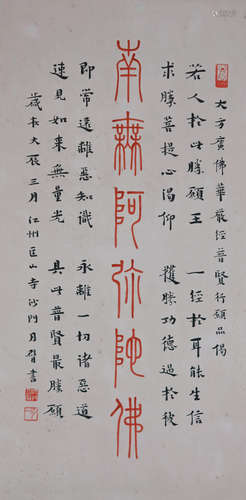 大方廣佛華嚴經普賢行願品偈
若人於此勝願王　一經於耳能生信
求勝菩提心渴仰　獲勝功德過於彼
南無阿弥陀佛
即常遠離惡知識　永離一切諸惡道
速見如來無量光　具此普賢最勝願
歲在大辰三月江州匡山寺沙門月臂書